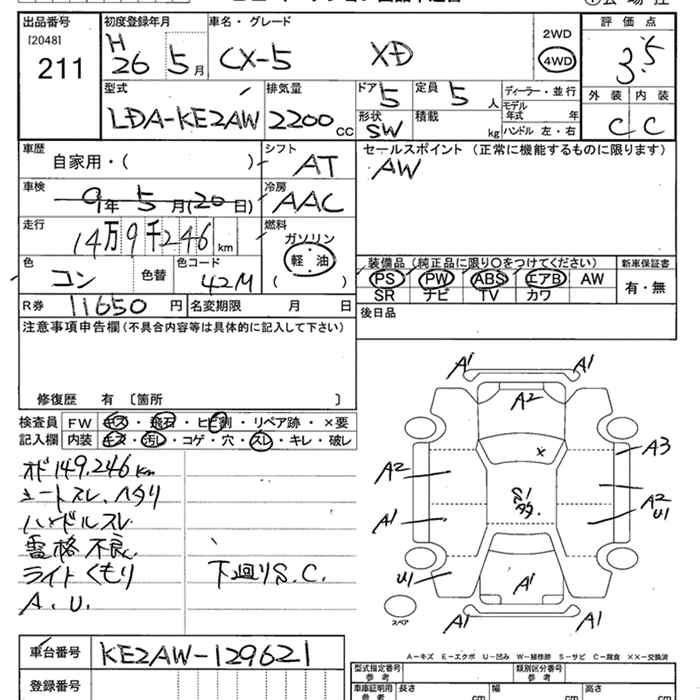 出品番号 初度登録年月 車名・グレード 評価点
[2048] 211
H 26 5月 CX-5 XD 2WD 4WD 3.5
型式 排気量 ドア 5 定員 5人 ディーラー・並行 外装 内装
LDA-KE2AW 2200cc 形状 SW 積載 kg モデル年式 年 C C
ハンドル 左・右
車歴 自家用・( ) シフト AT セールスポイント (正常に機能するものに限ります)
車検 9年 5月(20日) 冷房 AAC AW
走行 14万9千246km 燃料 ガソリン
軽・油
( )
色 コン 色替 色コード 42M
装備品(純正品に限り○をつけてください) 新車保証書
PS PW ABS エアB AW 有・無
SR ナビ TV カワ
R券 11650円 名変期限 月 日
後日品
注意事項申告欄(不具合内容等は具体的に記入して下さい)
修復歴 有 〔箇所 〕
検査員 FW キズ・飛石・ヒビ割・リペア跡・×要
記入欄 内装 キズ・汚レ・コゲ・穴・スレ・キレ・破レ
オド149,246km
シートスレ、ヘタリ
ハンドルスレ
ライトくもり 下廻りS.C.
A.U.
A1 A1
A2
×
A3
A2
S1
多
A2
U1
A1
U1
A1
A1 A1
スペア
車台番号 KE2AW-129621
A-キズ E-エクボ U-凹み W-補修跡 S-サビ C-腐食 ××-交換済
登録番号
型式指定番号 参考 類別区分番号 参考
車庫証明用 参考 長さ cm 幅 cm 高さ cm